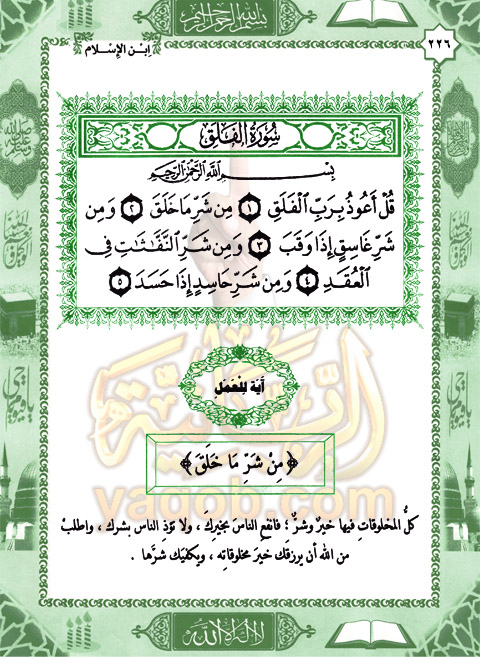 بسم الله الرحمن الرحيم
ابن الإسلام
٢٢٦
سُورَةُ الْفَلَقِ
بِسْمِ اللَّهِ الرَّحْمَٰنِ الرَّحِيمِ
قُلْ أَعُوذُ بِرَبِّ الْفَلَقِ ١ مِن شَرِّ مَا خَلَقَ ٢ وَمِن
شَرِّ غَاسِقٍ إِذَا وَقَبَ ٣ وَمِن شَرِّ النَّفَّاثَاتِ فِي
الْعُقَدِ ٤ وَمِن شَرِّ حَاسِدٍ إِذَا حَسَدَ ٥
آيَة لِلْعَمَلِ
﴿مِنْ شَرِّ مَا خَلَقَ﴾
yaqob.com
كلُّ المخلوقاتِ فيها خيرٌ وشرٌّ ؛ فانفعِ الناسَ بخيرِكَ ، ولا تؤذِ الناس بشرك ، واطلبْ
من الله أن يرزقك خيرَ مخلوقاتِه ، ويكفيَك شرَّها .
لا إله إلا الله